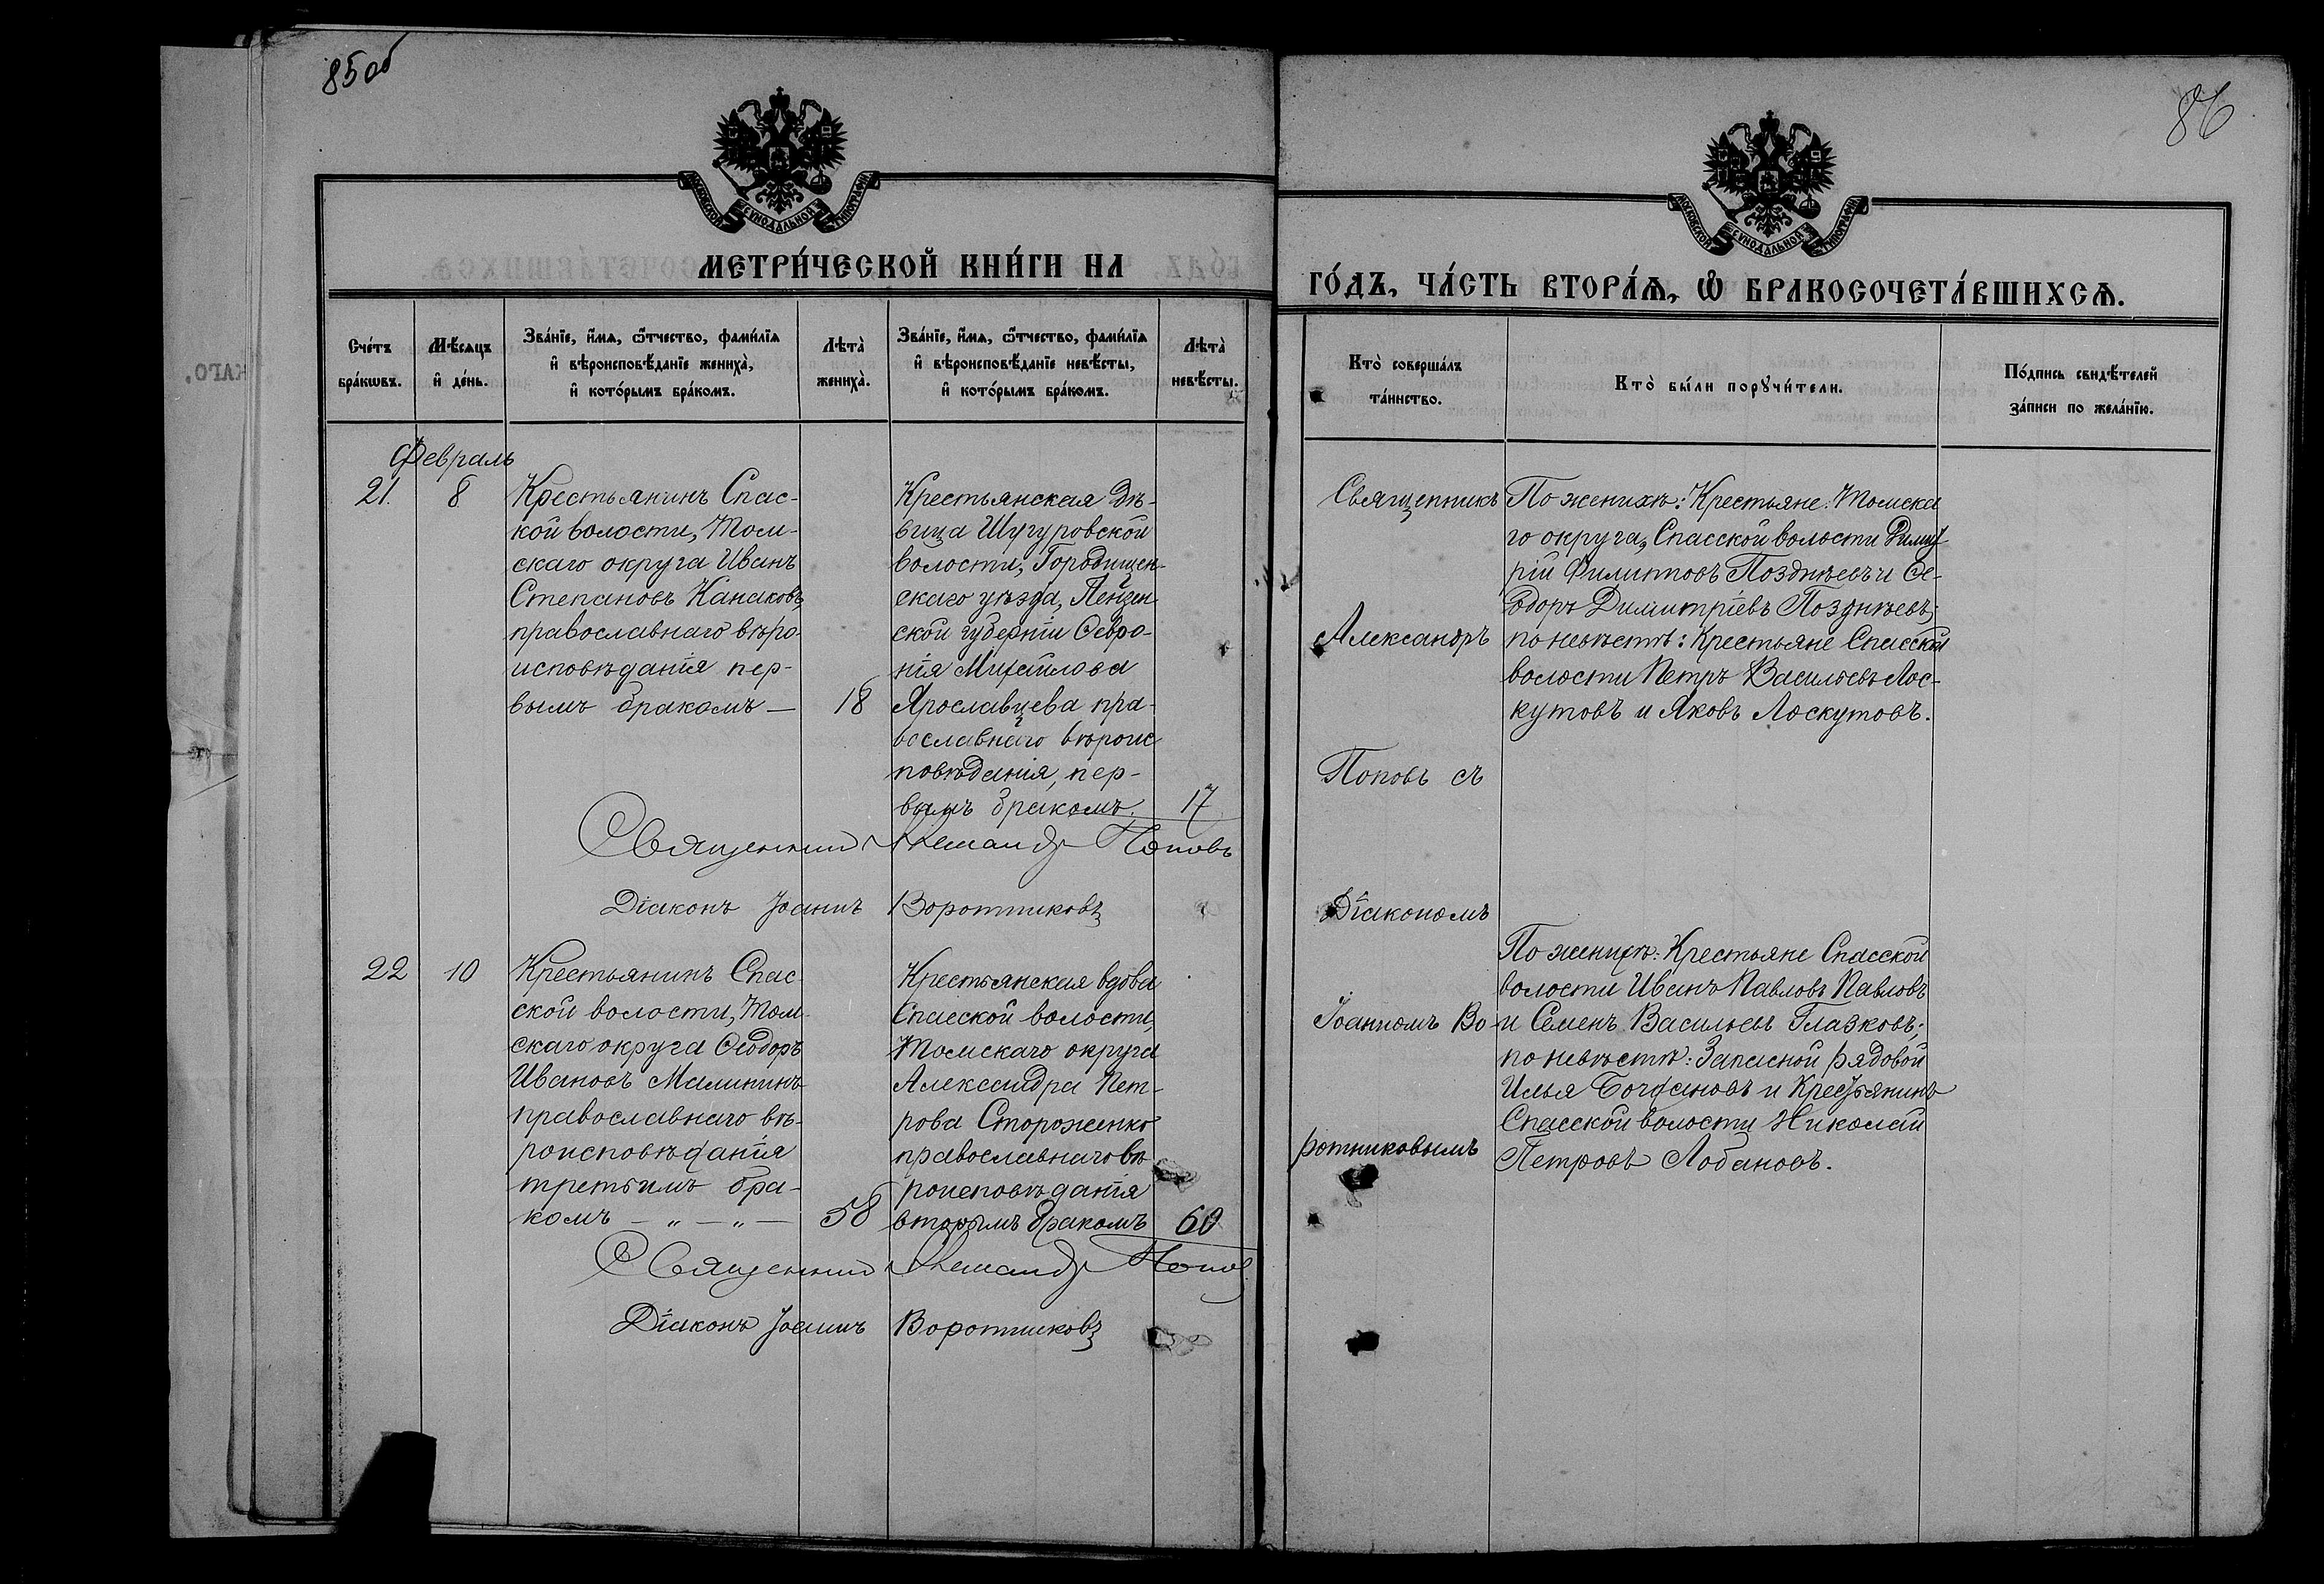 85об
МОСКОВСКОЙ СѴНОДАЛЬНОЙ ТИПОГРАФІИ
МЕТРИ́ЧЕСКОЙ КНИ́ГИ НА
Сче́тъ бра́кѡвъ.
Мѣ́сяцъ и҆ де́нь.
Зва́нїе, и҆́мѧ, ѻ҆́тчество, фами́лїѧ и҆ вѣроисповѣ́данїе жениха̀, и҆ кото́рымъ бра́комъ.
Лѣта̀ жениха̀.
Зва́нїе, и҆́мѧ, ѻ҆́тчество, фами́лїѧ и҆ вѣроисповѣ́данїе невѣ́сты, и҆ кото́рымъ бра́комъ.
Лѣта̀ невѣ́сты.
Февраль
21. 8
Крестьянинъ Спас-
кой волости, Том-
скаго округа Иванъ
Степановъ Канаковъ,
православнаго вѣро
исповѣданія пер-
вымъ бракомъ — 18
Крестьянская дѣ-
вица Шугуровской
волости, Городищен-
скаго уѣзда, Пензен
ской губерніи Ѳевро-
нія Михаилова
Ярославцева пра-
вославнаго вѣроис
повѣданія, пер-
вымъ бракомъ. 17
Священникъ Александръ Поповъ
Діаконъ Іоаннъ Воротниковъ
22 10
Крестьянинъ Спас
ской волости, Том-
скаго округа Ѳеодоръ
Ивановъ Малининъ
православнаго вѣ-
роисповѣданія
третьимъ бра-
комъ — „ — „ — 58
Крестьянская вдова
Спасской волости,
Томскаго округа
Александра Пет-
рова Стороженко
православнаго вѣ
роисповѣданія
вторымъ бракомъ 60
Священникъ Александръ Поповъ
Діаконъ Іоаннъ Воротниковъ
86
МОСКОВСКОЙ СѴНОДАЛЬНОЙ ТИПОГРАФІИ
ГО́ДЪ, ЧА́СТЬ ВТОРА́Ѧ, Ѽ БРАКОСОЧЕТА́ВШИХСѦ.
Кто̀ соверша́лъ та́инство.
Кто̀ бы́ли порꙋчи́тели.
По́дпись свидѣ́телей за́писи по жела́нїю.
Священникъ
Александръ
Поповъ съ
Діакономъ
Іоанномъ Во-
ротниковымъ
По женихѣ: Крестьяне Томска
го округа, Спасской волости Димит
рій Филиповъ Позднѣевъ и Ѳе-
одоръ Димитріевъ Позднѣевъ;
по невѣстѣ: Крестьяне Спасской
волости Петръ Васильевъ Лос-
кутовъ и Яковъ Лоскутовъ.
По женихѣ: Крестьяне Спасской
волости Иванъ Павловъ Павловъ
и Семенъ Васильевъ Глазковъ;
по невѣстѣ: Запасной рядовой
Илья Богдановъ и Крестьянинъ
Спасской волости Николай
Петровъ Лобановъ.